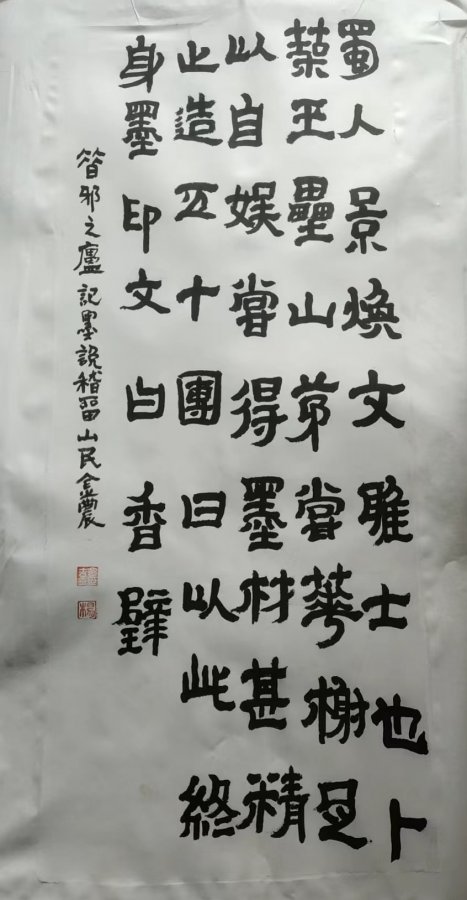 蜀人景煥文雅士也卜
築玉壘山茅堂華榭足
以自娛嘗得墨材甚精
止造五十團曰以此終
身墨印文曰香璧
昔邪之廬記墨說稽留山民金農